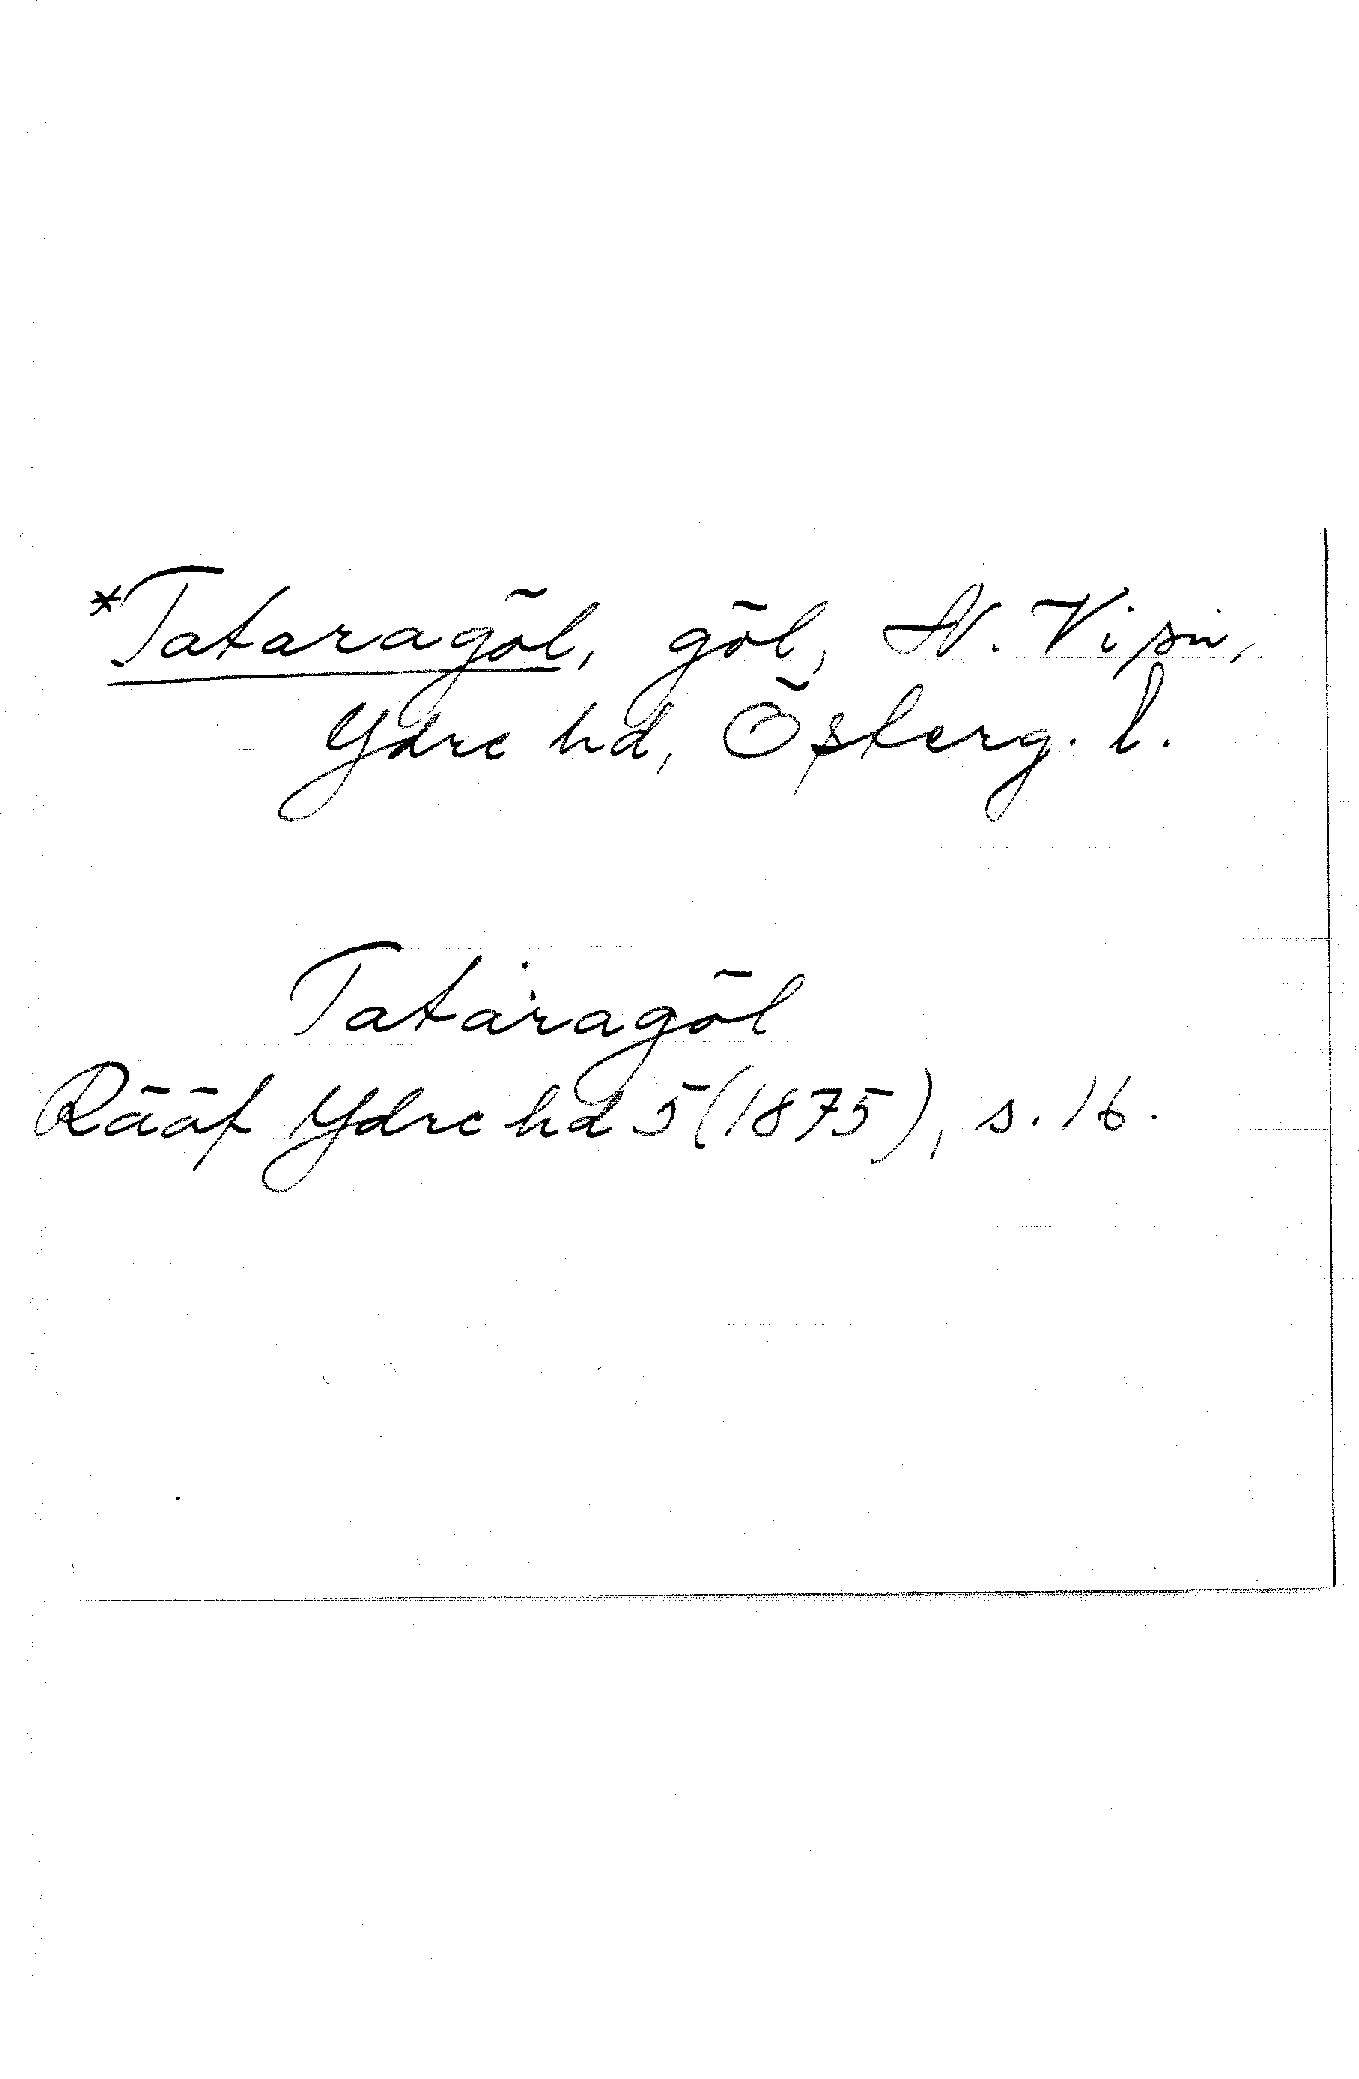 *Tataragöl, göl, N. Vi sn,
Ydre hd, Österg. l.
Tataragöl
Rääf Ydre hd 5 (1875), s. 16.